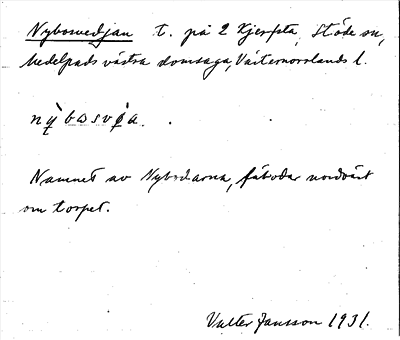 Nybosvedjan t. på 2 Kjersta, Stöde sn,
Medelpads västra domsaga, Västernorrlands l.
Namnet av Nybodarna, fäbodar nordväst
om torpet.
Valter Jansson 1931.